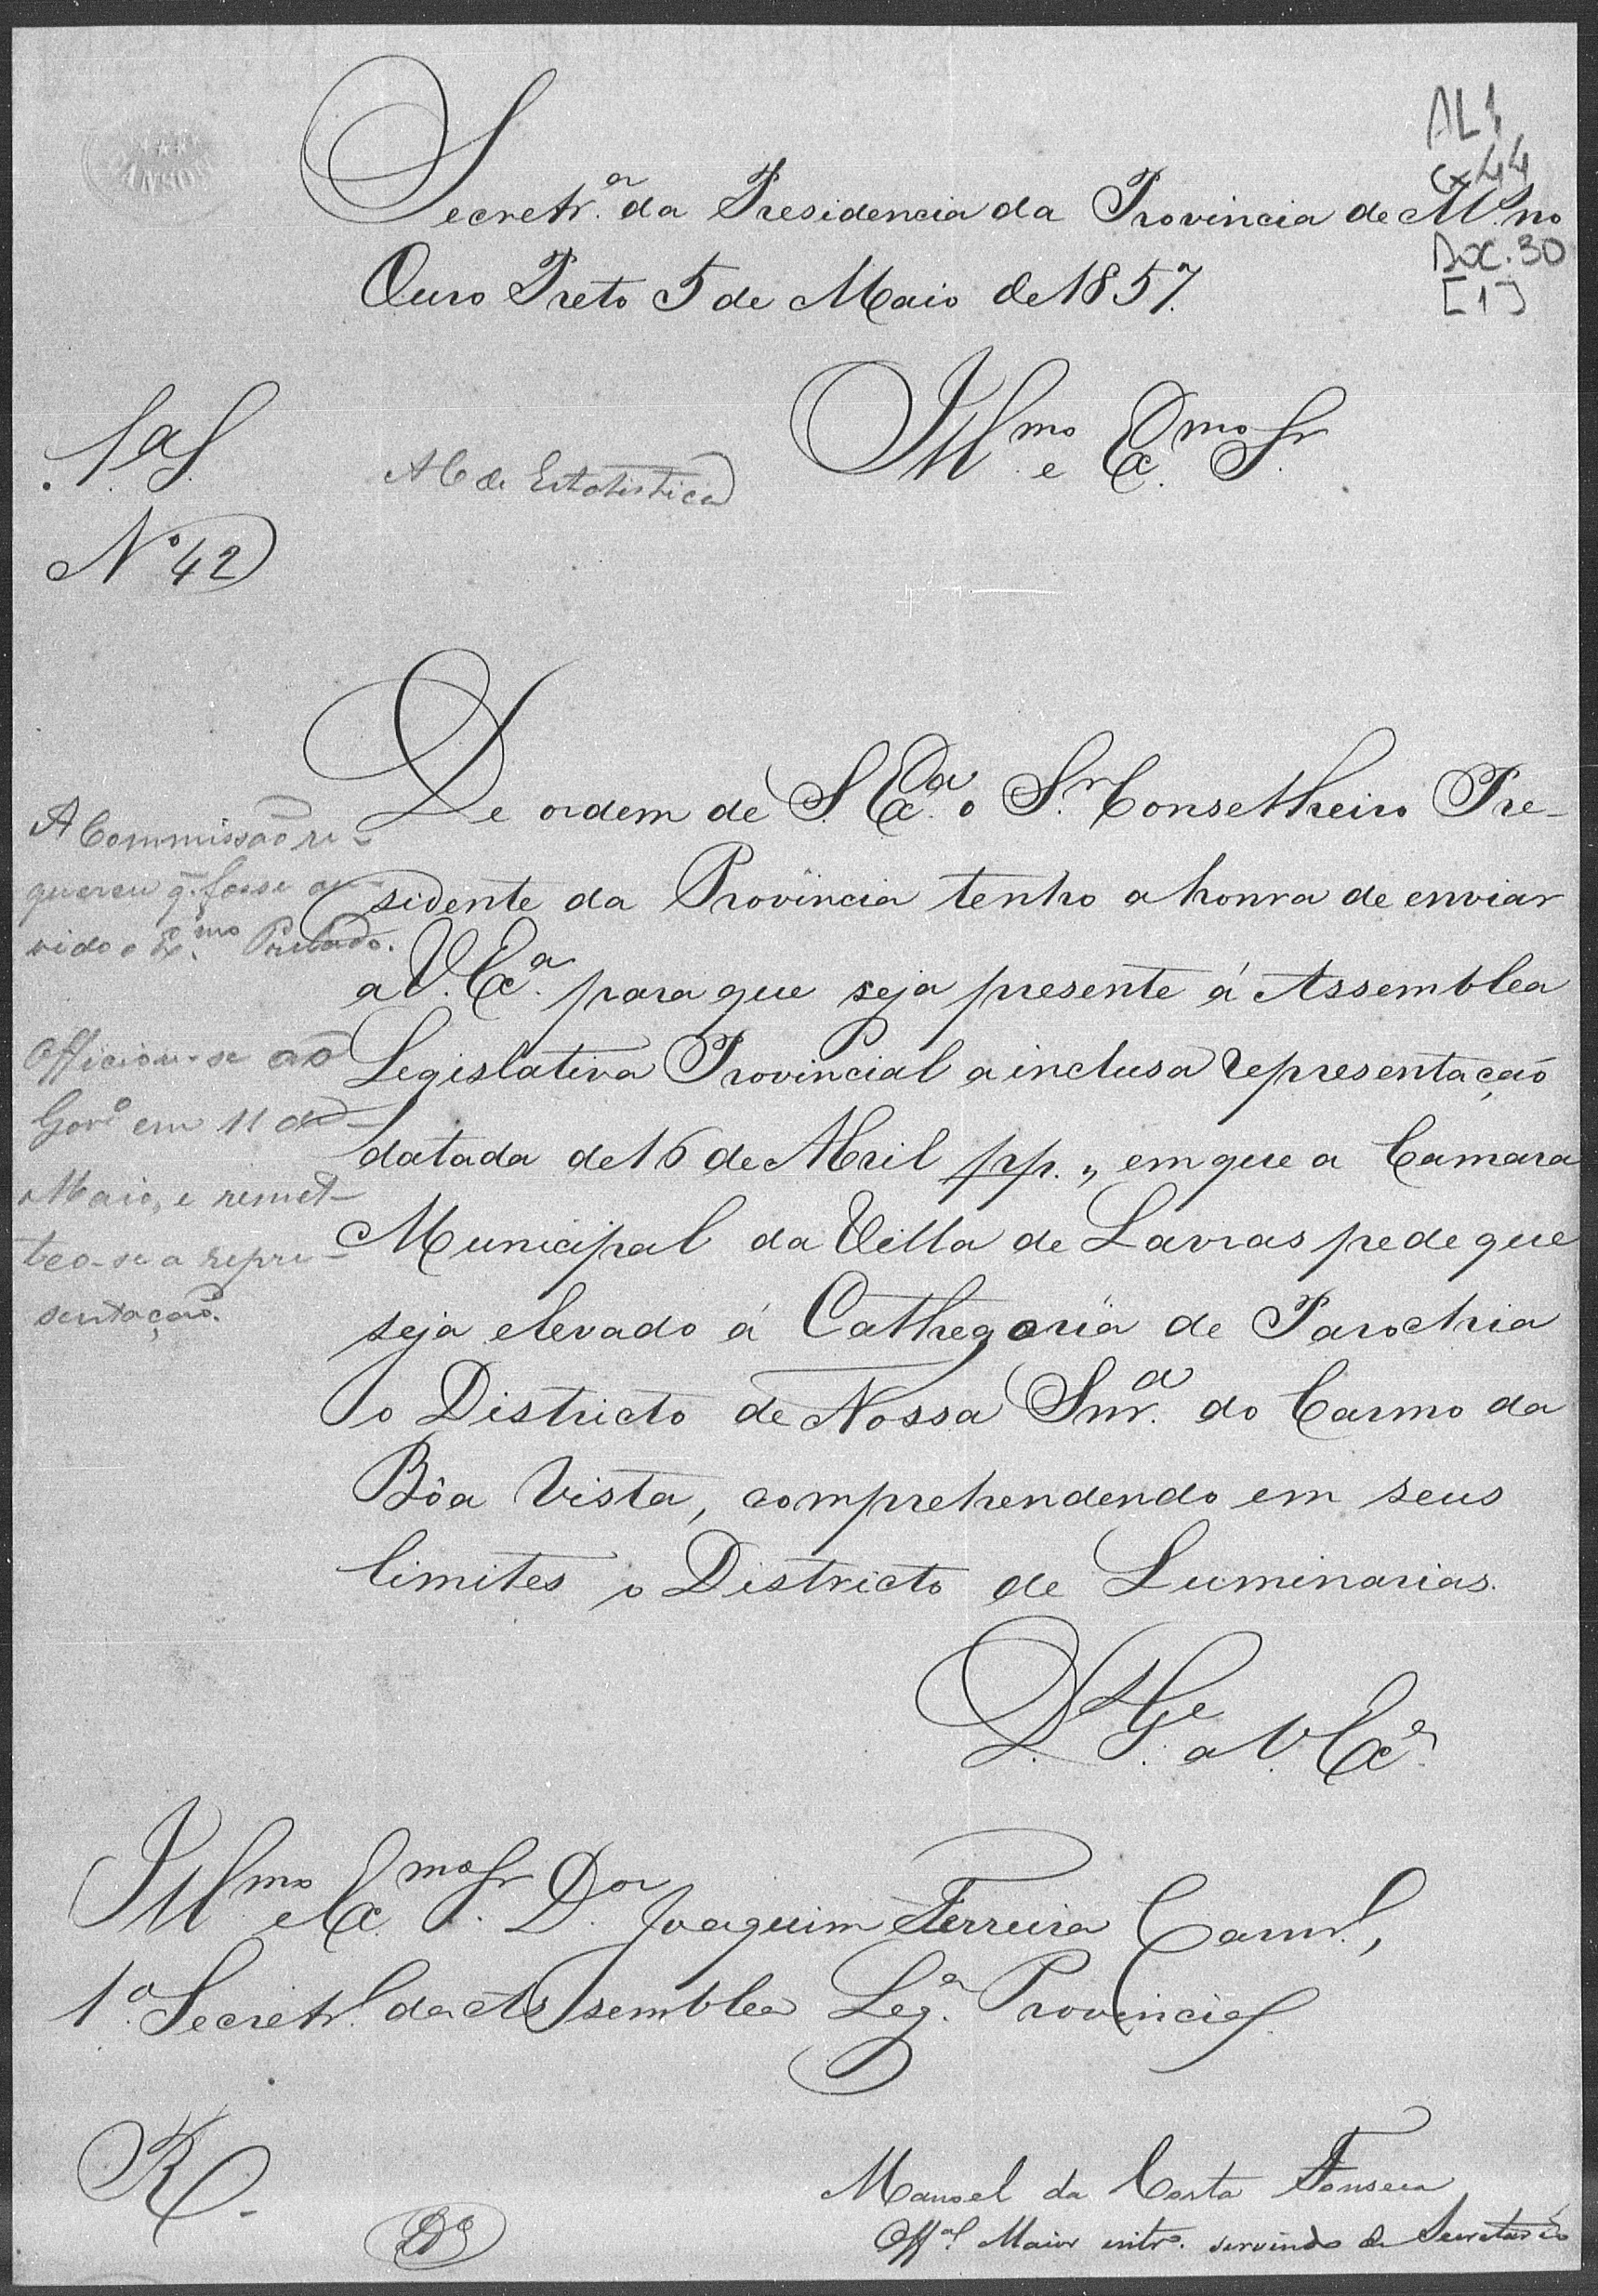 AL1
Cx 44
Doc. 30
[1]
Secretr.ª da Presidencia da Provincia de M.s no
Ouro Preto 5 de Maio de 1857.
Ill.mo e Ex.mo Sr.
1.ª S.
A C de Estatistica
Nº 42
De ordem de S. Ex.ª o Sr. Conselheiro Pre-
sidente da Provincia tenho a honra de enviar
a V. Ex.ª para que seja presente á Assemblea
Legislativa Provincial a inclusa representação
datada de 16 de Abril pp., em que a Camara
Municipal da Villa de Lavras pede que
seja elevado á Cathegoria de Parochia
o Districto de Nossa Snr.ª do Carmo da
Bôa Vista, comprehendendo em seus
limites o Districto de Luminarias.
A Commissão re-
quereu q. fosse ou-
vido o Ex.mo Prelado.
Officiou-se ao
Gov.º em 11 de
Maio, e remet-
teo-se a repre-
sentação.
D.s G.e a V. Ex.ª
Ill.mo e Ex.mo Sr. D.or Joaquim Ferreira Carnr.º,
1.º Secretr.º da Assemblea Leg.ª Provincial
Manoel da Costa Fonseca
Off.al Maior intr.º servindo de Secretario